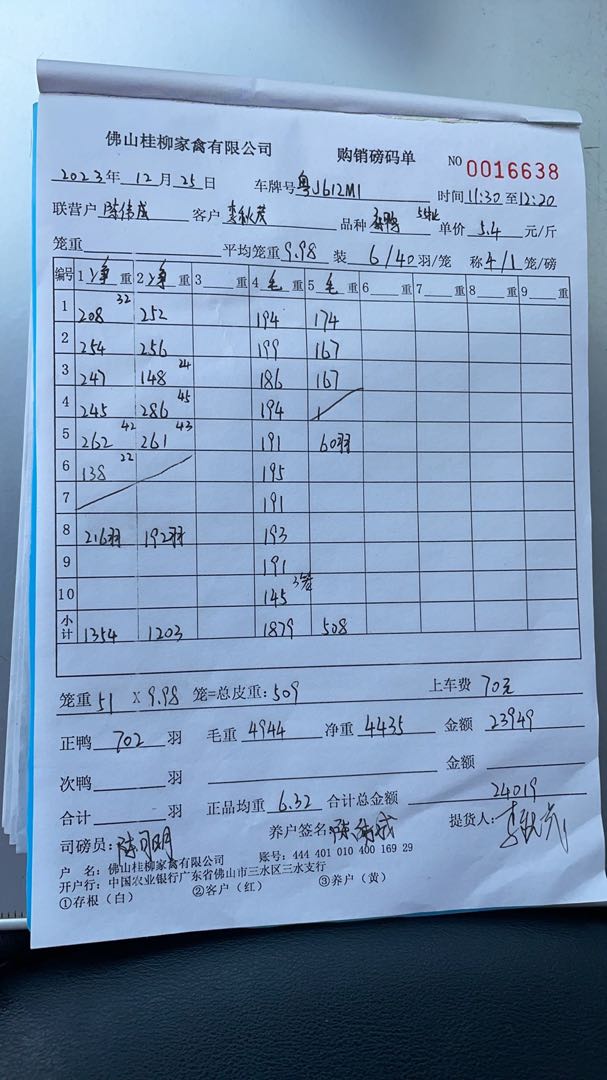 佛山桂柳家禽有限公司 购销磅码单 NO 0016638
2023年 12月 25日 车牌号 粤J612M1 时间 11:30 至 12:20
联营户 陈伟成 客户 李秋茂 品种 单价 5.4 元/斤
笼重 平均笼重 9.98 装 6/40 羽/笼 称 4/1 笼/磅
编号 1 净 重 2 净 重 3 重 4 毛 重 5 毛 重 6 重 7 重 8 重 9 重
1 208 32 252 194 174
2 254 256 199 167
3 247 148 24 186 167
4 245 286 45 194
5 262 42 261 43 191 60羽
6 138 22 195
7 191
8 216羽 192羽 193
9 191
10 145 3笼
小计 1354 1203 1879 508
笼重 51 X 9.98 笼=总皮重: 509 上车费 70元
正鸭 702 羽 毛重 4944 净重 4435 金额 23949
次鸭 羽 金额
合计 羽 正品均重 6.32 合计总金额 24019
司磅员: 陈可明 养户签名: 陈伟成 提货人: 李秋茂
户 名: 佛山桂柳家禽有限公司 账号: 444 401 010 400 169 29
开户行: 中国农业银行广东省佛山市三水区三水支行
①存根（白） ②客户（红） ③养户（黄）